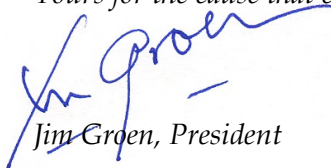 Yours for the cause that
Jim Groen
Jim Groen, President